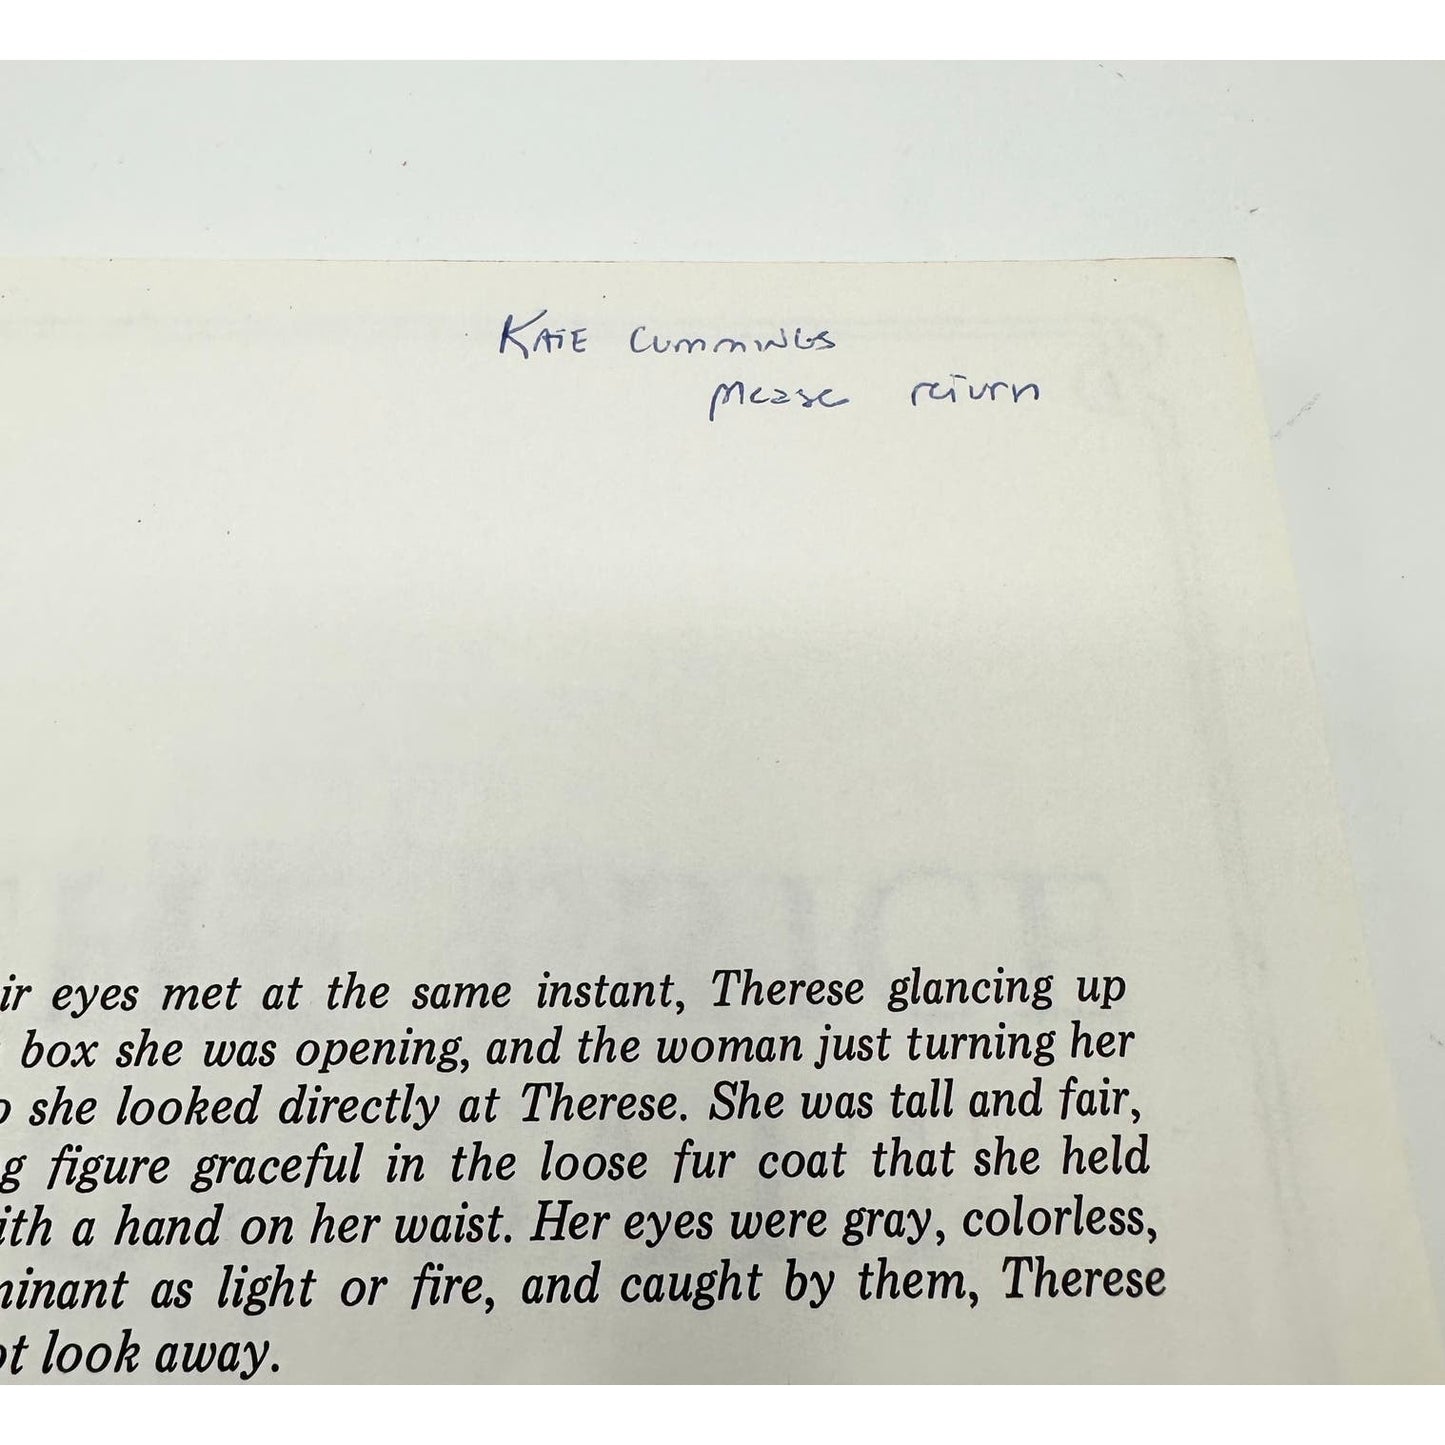 KATE CUMMINGS
please return
ir eyes met at the same instant, Therese glancing up
box she was opening, and the woman just turning her
o she looked directly at Therese. She was tall and fair,
g figure graceful in the loose fur coat that she held
ith a hand on her waist. Her eyes were gray, colorless,
minant as light or fire, and caught by them, Therese
ot look away.